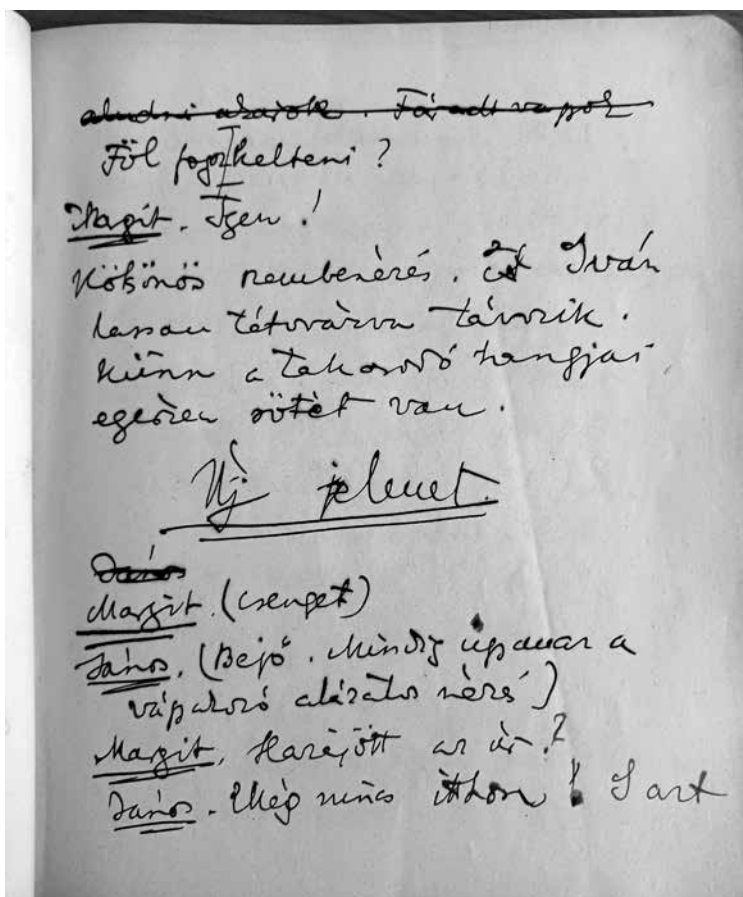 aludni akarok. Fáradt vagyok
Föl fogsz kelteni?
Margit. Igen!
Kölsönös szembenézés. Iván
lassan tétovázva távozik.
Künn a takarodó hangjai
egészen sötét van.
Új jelenet.
János
Margit. (csenget)
János. (Bejő. Mindig ugyanaz a
vágyakozó alázatos nézés)
Margit. Hazajött az úr?
János. Még nincs itthon! S azt